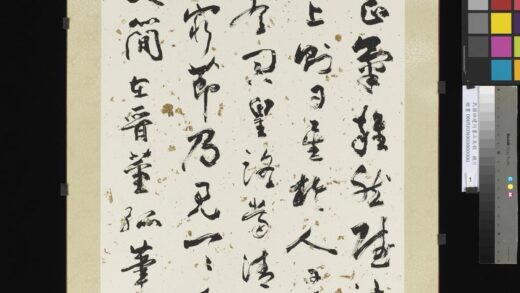 正氣雜然賦
上則日星於人
冥皇路當清
窮節乃見一一
簡在晉董狐筆